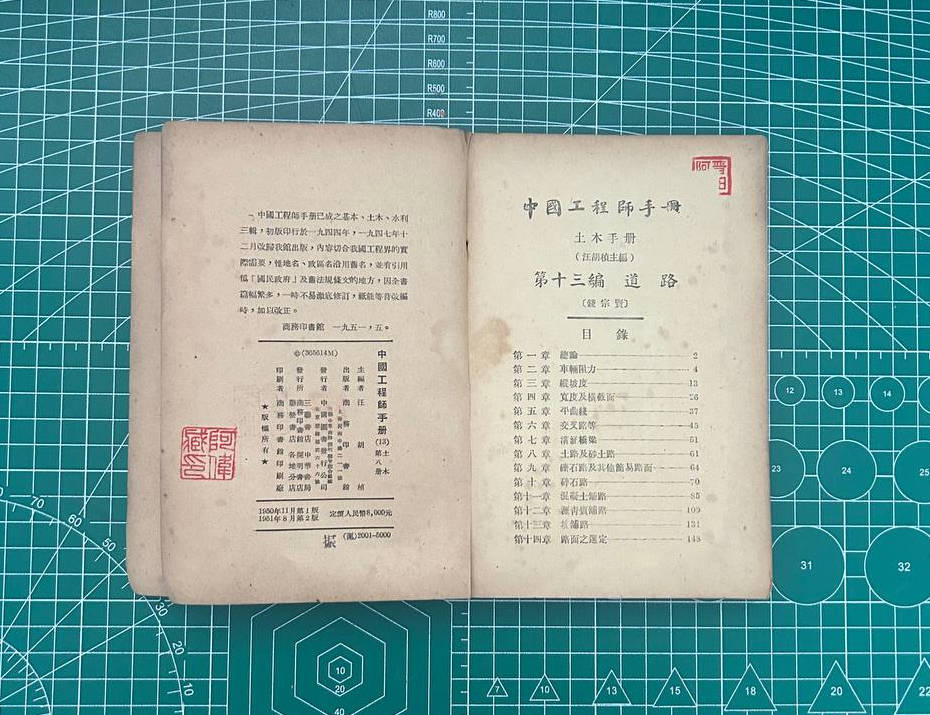 一、中國工程師手册已成之基本、土木、水利
三輯，初版印行於一九四四年，一九四七年十
二月改歸我館出版，內容切合我國工程界的實
際需要，惟地名、政區名沿用舊名，並有引用
偽「國民政府」及舊法規條文的地方，因全書
篇幅繁多，一時不易澈底修訂，祇能等待改編
時，加以改正。
商務印書館 一九五一，五。
◎(365614M)
中國工程師手册 (13) 土木 第八册
主編者 汪胡楨
出版者 商務印書館
發行者 中國圖書發行公司
發行所 三聯書店 中華書局
商務印書館 開明書店
聯營書店 各地分店
印刷者 商務印書館印刷廠
★版權所有★
1950年11月第1版
1951年8月第2版
定價人民幣8,000元
(滬)2001-5000
阿偉藏
中國工程師手冊
土木手册
(汪胡楨主編)
第十三編 道路
(錢宗賢)
目錄
第一章 總論 2
第二章 車輛阻力 4
第三章 縱坡度 13
第四章 寬度及橫截面 26
第五章 平曲綫 37
第六章 交叉路等 45
第七章 溝渠橋梁 51
第八章 土路及砂土路 61
第九章 礫石路及其他簡易路面 64
第十章 碎石路 70
第十一章 混凝土鋪路 85
第十二章 瀝青質鋪路 109
第十三章 塊鋪路 131
第十四章 路面之選定 148
R800
R700
R600
R500
R400
12
13
14
23
25
31
32
70
60
50
30
20
10
10
20
40
7
10
13
15
18
20
22